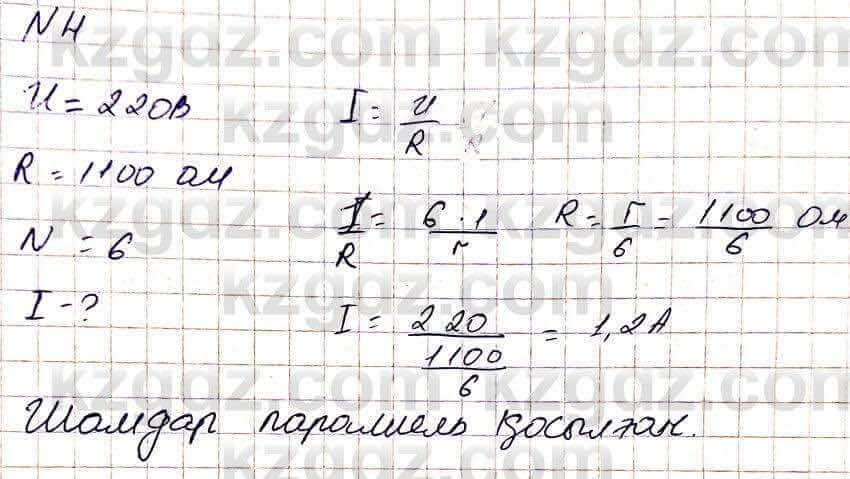 N4
U = 220В
I = U/R
R = 1100 ом
I/R = 6·1/r R = r/6 = 1100/6 Ом
N = 6
I - ?
I = 220/(1100/6) = 1,2А
Шамдар параллель қосылған.
kzgdz.com